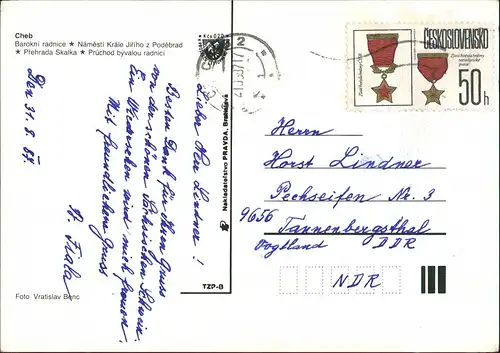 Cheb
Barokní radnice ★ Náměstí Krále Jiřího z Poděbrad
★ Přehrada Skalka ★ Průchod bývalou radnicí
Den 31. 8. 87.
Lieber Herr Lindner !
Besten Dank für Ihren Gruss
von der schönen Schweiz.
Ein Wiedersehen wird mich freuen.
Mit freundlichem Gruss
Fiala
Foto Vratislav Benc
Nakladatelství PRAVDA, Bratislava
TZP-B
Kčs 0,20
2
ČESKOSLOVENSKO
50 h
Herrn
Horst Lindner
Pechseifen Nr. 3
9656
Tannenbergsthal
Vogtland DDR
NDR